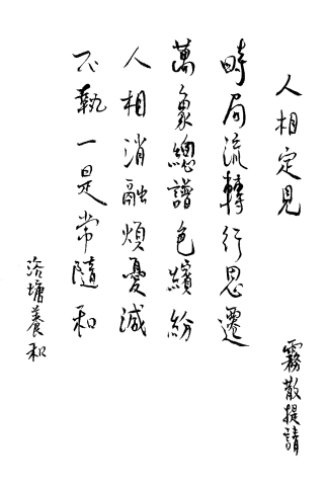 人相定見
時局流轉行思遷
萬象總譜色繽紛
人相消融煩憂減
不執一是常隨和
霧散提請
洽塘養和